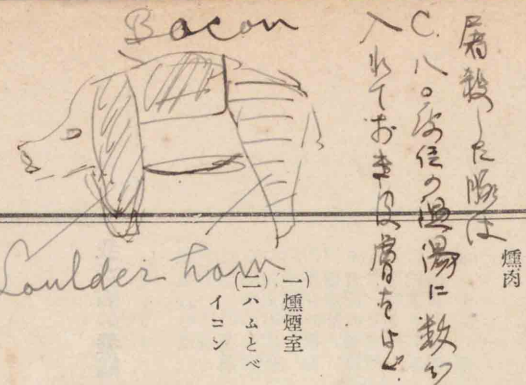 屠殺した豚は
C.八〇度位の温湯に数分
入れておき皮膚を
Bacon
Loulder ham
燻肉
(一)燻煙室
(二)ハムとベ
イコン